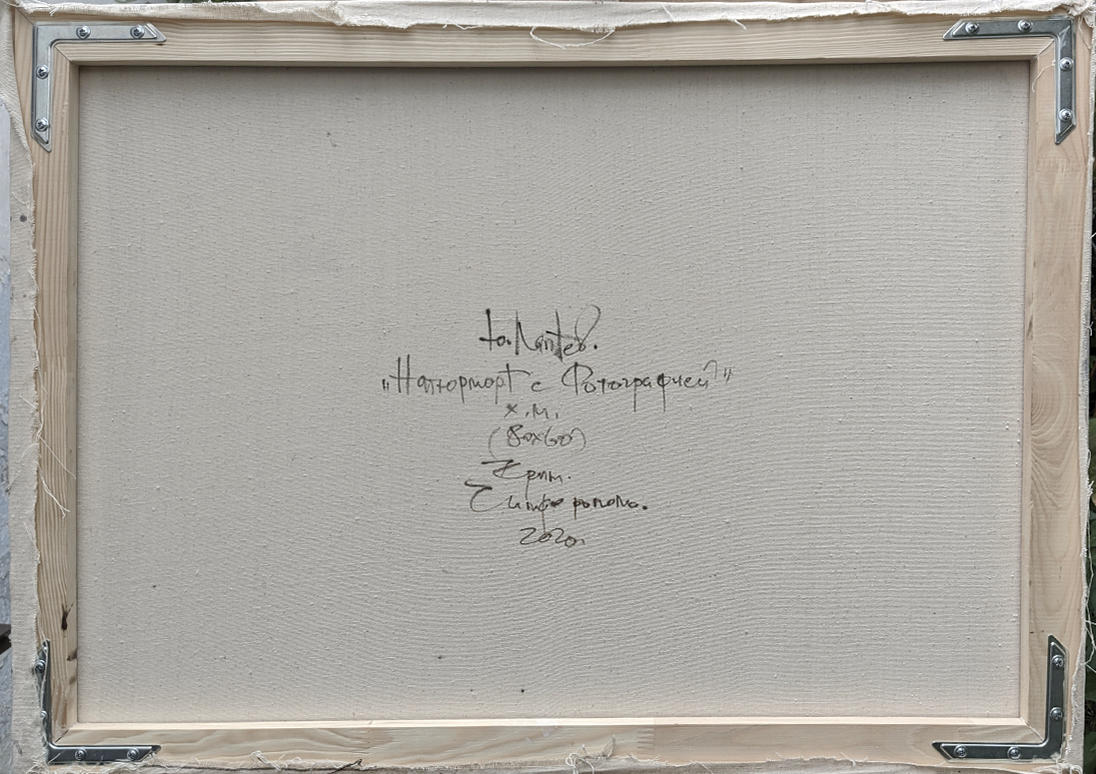 Ю. Лаптев.
„Натюрморт с Фотографией"
х.м.
(80х60)
Крым.
Симферополь.
2020г.